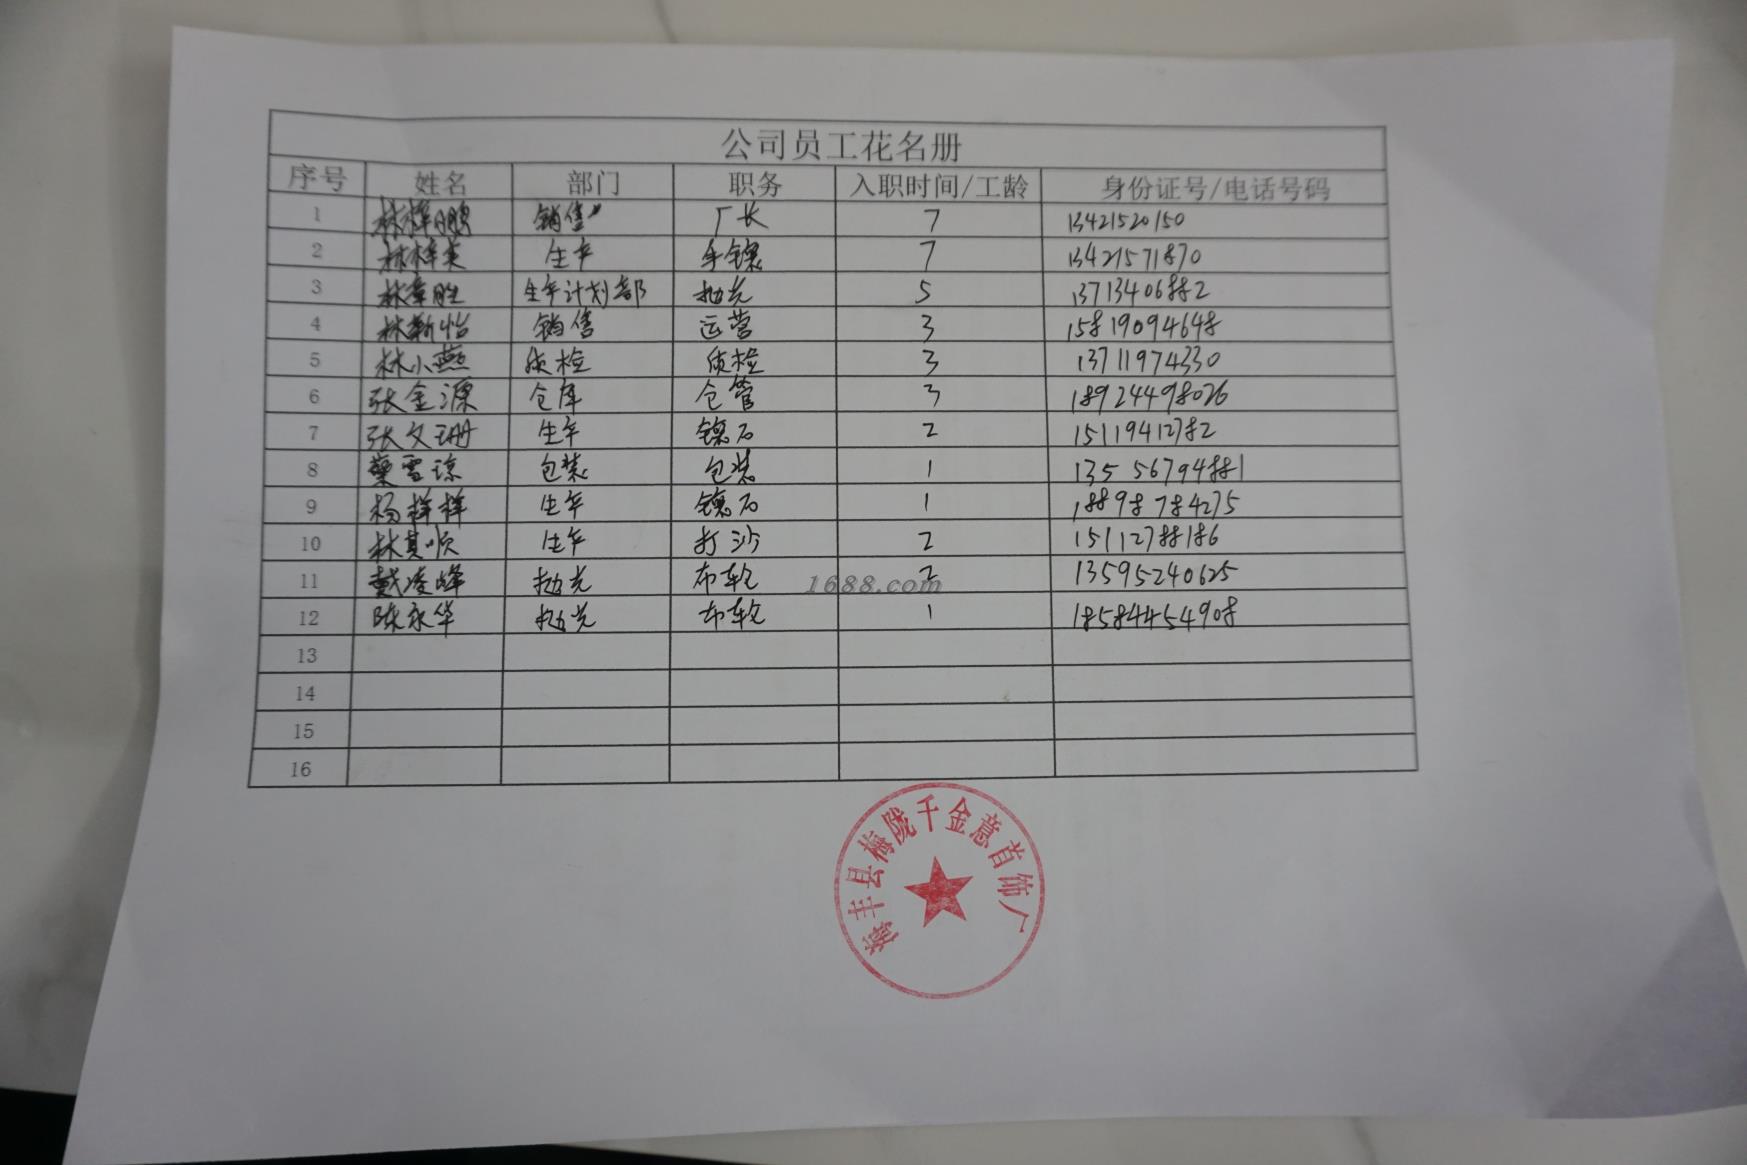 公司员工花名册
序号 姓名 部门 职务 入职时间/工龄 身份证号/电话号码
1 林梓鹏 销售 厂长 7 13421520150
2 林梓英 生产 手镶 7 13421571870
3 林章胜 生产计划部 抛光 5 13713406882
4 林靳怡 销售 运营 3 15819094648
5 林小燕 质检 质检 3 13711974330
6 张金源 仓库 仓管 3 18924498026
7 张文珊 生产 镶石 2 15119412782
8 蔡雪琼 包装 包装 1 13556794881
9 杨样样 生产 镶石 1 18898784275
10 林其顺 生产 打沙 2 15112788186
11 戴凌峰 抛光 布轮 2 13595240625
12 陈永华 抛光 布轮 1 18584454908
13
14
15
16
1688.com
海丰县梅陇千金意首饰厂